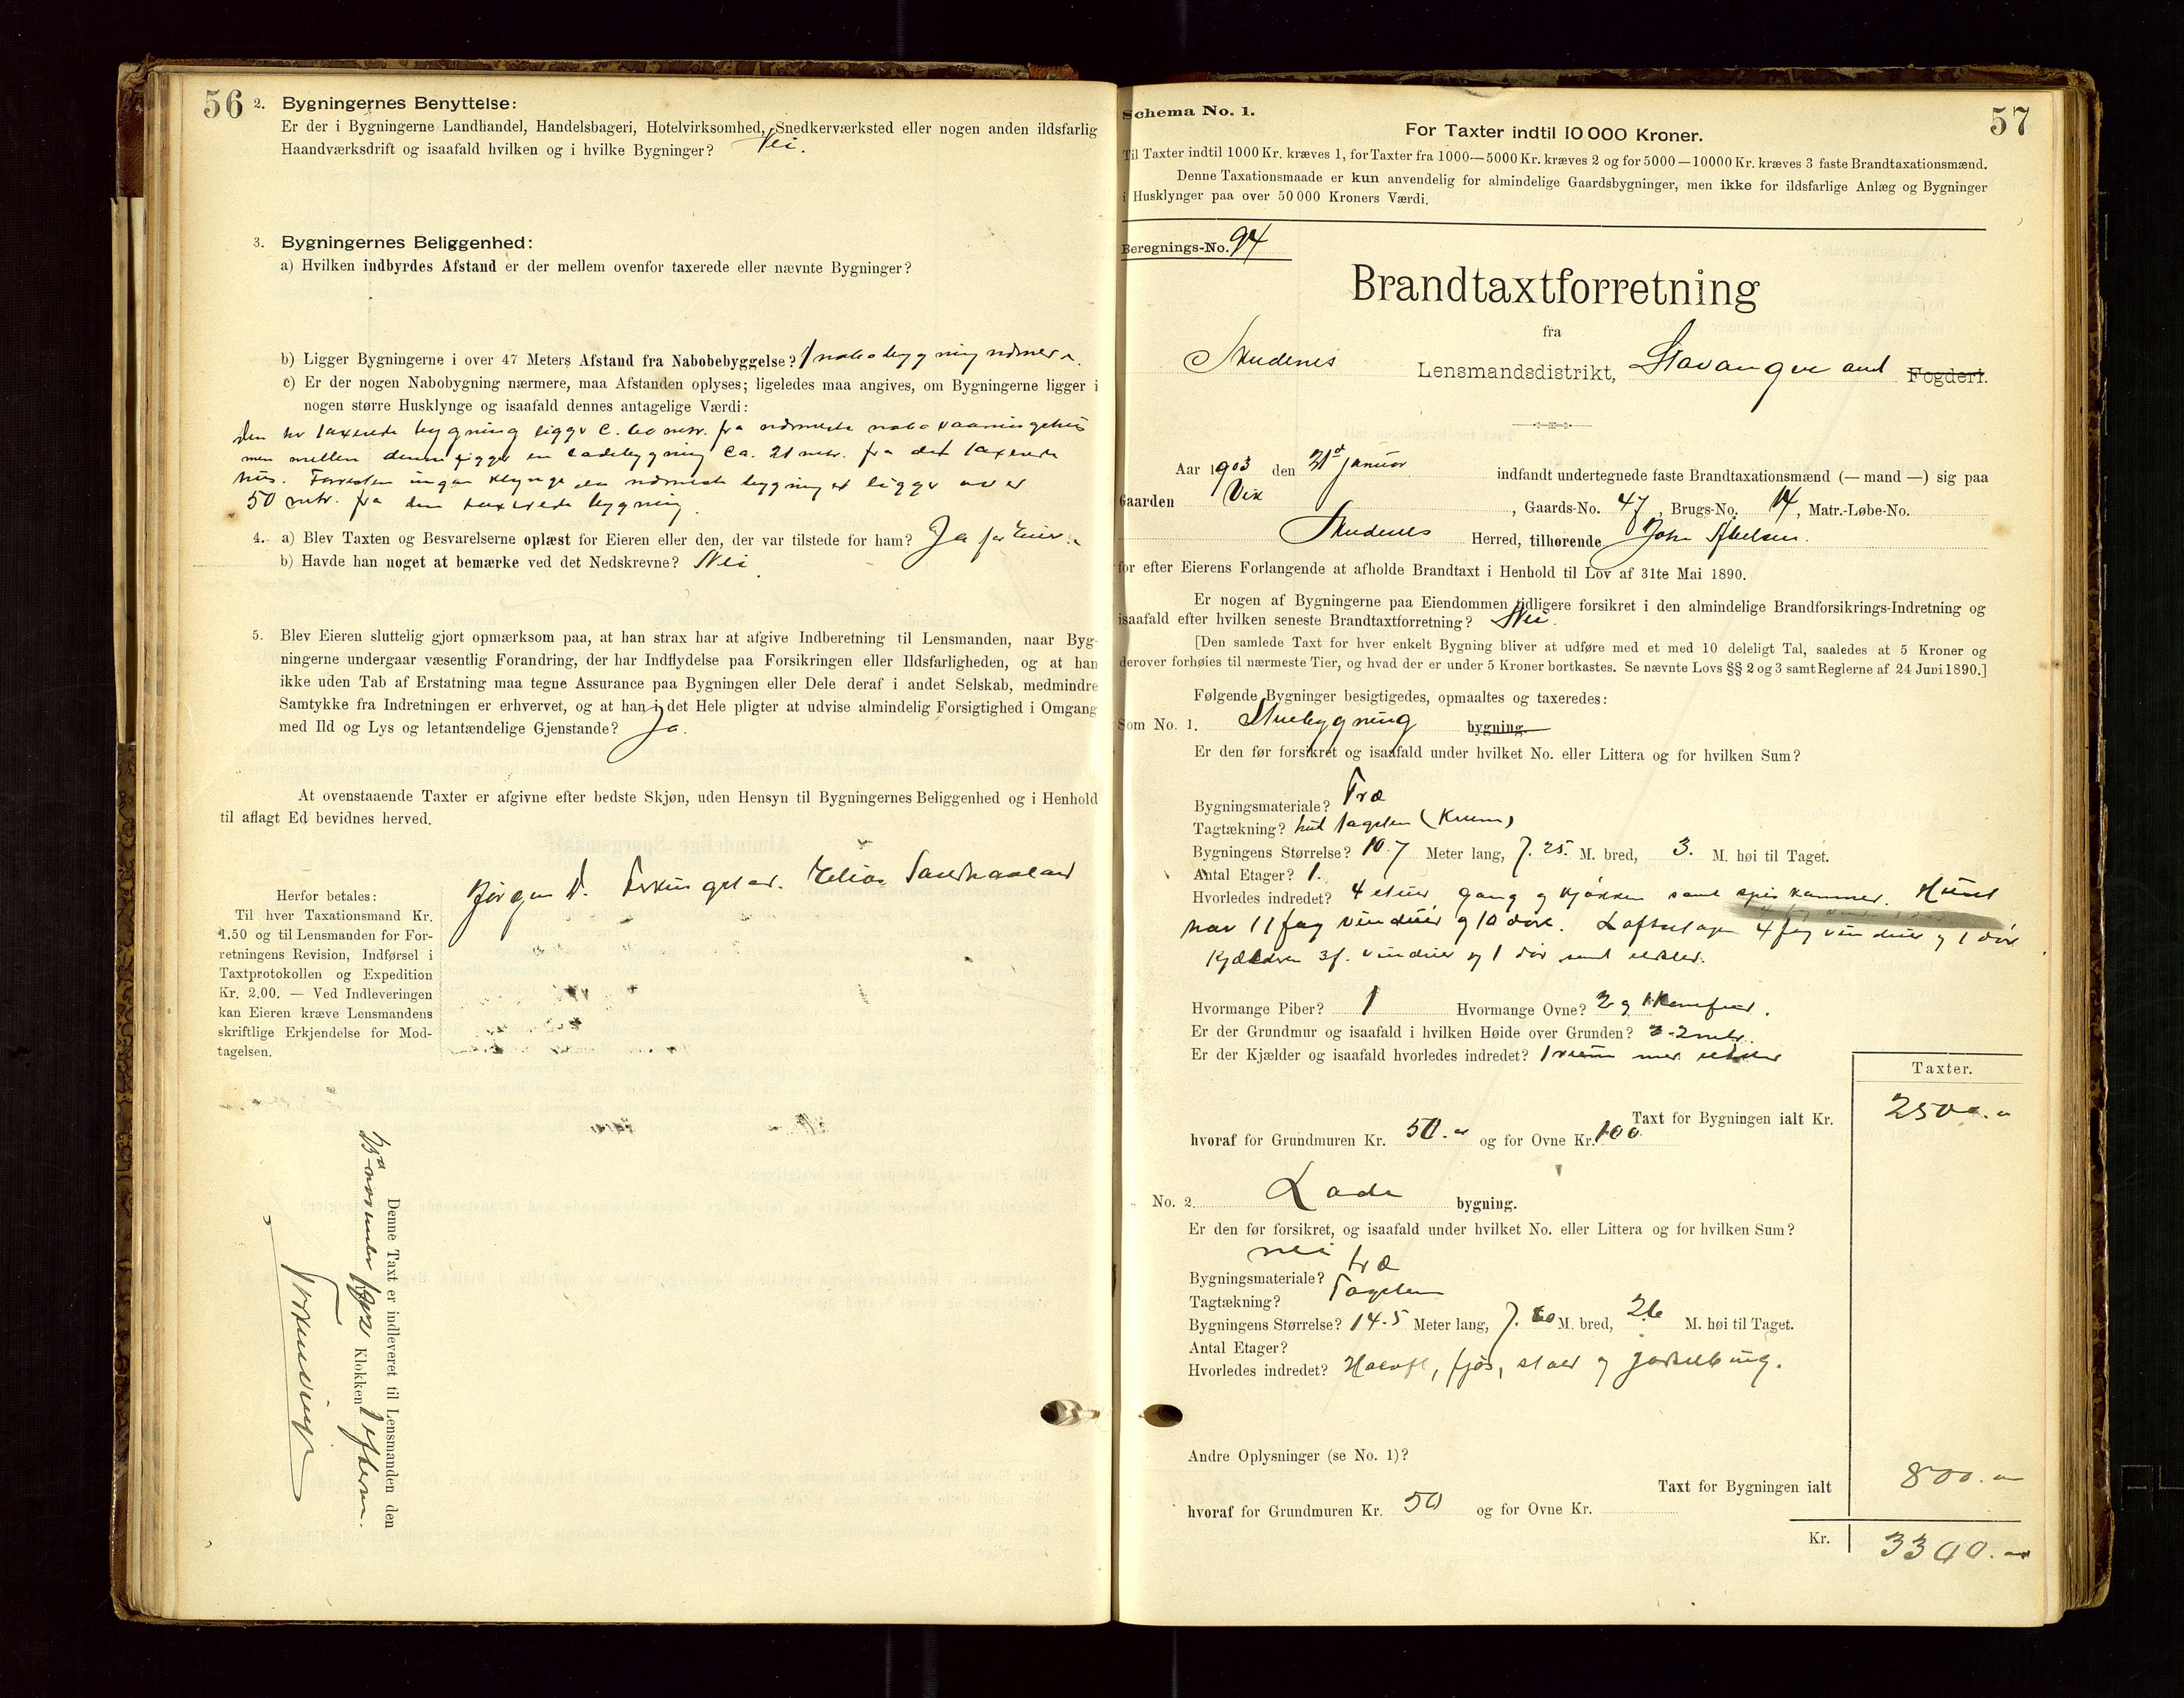 56
2. Bygningernes Benyttelse:
Er der i Bygningerne Landhandel, Handelsbageri, Hotelvirksomhed, Snedkerværksted eller nogen anden ildsfarlig
Haandværksdrift og isaafald hvilken og i hvilke Bygninger? Nei.
3. Bygningernes Beliggenhed:
a) Hvilken indbyrdes Afstand er der mellem ovenfor taxerede eller nævnte Bygninger?
b) Ligger Bygningerne i over 47 Meters Afstand fra Nabobebyggelse? 1 nabobygning nærmere.
c) Er der nogen Nabobygning nærmere, maa Afstanden oplyses; ligeledes maa angives, om Bygningerne ligger i
nogen større Husklynge og isaafald dennes antagelige Værdi:
Den her taxerede bygning ligger c. 60 metr. fra nærmeste nabo vaaningshus
men mellem denne ligger en ladebygning ca. 21 metr. fra det taxerede
hus. Forresten ingen klynge den nærmeste bygning ligger over
50 metr. fra den taxerede bygning.
4. a) Blev Taxten og Besvarelserne oplæst for Eieren eller den, der var tilstede for ham? Ja for Eieren
b) Havde han noget at bemærke ved det Nedskrevne? Nei.
5. Blev Eieren sluttelig gjort opmærksom paa, at han strax har at afgive Indberetning til Lensmanden, naar Byg-
ningerne undergaar væsentlig Forandring, der har Indflydelse paa Forsikringen eller Ildsfarligheden, og at han
ikke uden Tab af Erstatning maa tegne Assurance paa Bygningen eller Dele deraf i andet Selskab, medmindre
Samtykke fra Indretningen er erhvervet, og at han i det Hele pligter at udvise almindelig Forsigtighed i Omgang
med Ild og Lys og letantændelige Gjenstande? Ja.
At ovenstaaende Taxter er afgivne efter bedste Skjøn, uden Hensyn til Bygningernes Beliggenhed og i Henhold
til aflagt Ed bevidnes herved.
Jørgen D. Elias Sandhaaland
Herfor betales:
Til hver Taxationsmand Kr.
1.50 og til Lensmanden for For-
retningens Revision, Indførsel i
Taxtprotokollen og Expedition
Kr. 2.00. — Ved Indleveringen
kan Eieren kræve Lensmandens
skriftlige Erkjendelse for Mod-
tagelsen.
Denne Taxt er indleveret til Lensmanden den
november Klokken 1 efterm.
57
Schema No. 1.
For Taxter indtil 10 000 Kroner.
Til Taxter indtil 1000 Kr. kræves 1, for Taxter fra 1000—5000 Kr. kræves 2 og for 5000—10000 Kr. kræves 3 faste Brandtaxationsmænd.
Denne Taxationsmaade er kun anvendelig for almindelige Gaardsbygninger, men ikke for ildsfarlige Anlæg og Bygninger
i Husklynger paa over 50 000 Kroners Værdi.
Beregnings-No. 94
Brandtaxtforretning
fra
Skudenes Lensmandsdistrikt, Stavanger amt Fogderi.
Aar 1903 den 21de Januar indfandt undertegnede faste Brandtaxationsmænd (— mand —) sig paa
Gaarden Vik, Gaards-No. 47, Brugs-No. 14, Matr.-Løbe-No.
Skudenes Herred, tilhørende John Abelsen.
for efter Eierens Forlangende at afholde Brandtaxt i Henhold til Lov af 31te Mai 1890.
Er nogen af Bygningerne paa Eiendommen tidligere forsikret i den almindelige Brandforsikrings-Indretning og
isaafald efter hvilken seneste Brandtaxtforretning? Nei.
[Den samlede Taxt for hver enkelt Bygning bliver at udføre med et med 10 deleligt Tal, saaledes at 5 Kroner og
derover forhøies til nærmeste Tier, og hvad der er under 5 Kroner bortkastes. Se nævnte Lovs §§ 2 og 3 samt Reglerne af 24 Juni 1890.]
Følgende Bygninger besigtigedes, opmaaltes og taxeredes:
Som No. 1. Stuebygning bygning.
Er den før forsikret og isaafald under hvilket No. eller Littera og for hvilken Sum?
Bygningsmateriale? Træ
Tagtækning? hul tagsten (Krum)
Bygningens Størrelse? 10.7 Meter lang, 7.25. M. bred, 3. M. høi til Taget.
Antal Etager? 1.
Hvorledes indretet? 4 stuer gang og kjøkken samt spiskammer. Huset
har 11 fag vinduer og 10 døre. Loftsetagen 4 fag vinduer og 1 dør
Kjælderen 3 f. vinduer og 1 dør samt
Hvormange Piber? 1 Hvormange Ovne? 2 og 1 Komfur.
Er der Grundmur og isaafald i hvilken Høide over Grunden? 2 metr.
Er der Kjælder og isaafald hvorledes indredet? 1 rum med
Taxter.
Taxt for Bygningen ialt Kr. 2500.
hvoraf for Grundmuren Kr. 50. og for Ovne Kr. 100
No. 2. Lade bygning.
Er den før forsikret, og isaafald under hvilket No. eller Littera og for hvilken Sum?
nei
Bygningsmateriale? træ
Tagtækning? Tagsten
Bygningens Størrelse? 14.5 Meter lang, 7.60 M. bred, 2.6 M. høi til Taget.
Antal Etager?
Hvorledes indredet? fjøs, stald og
Andre Oplysninger (se No. 1)?
Taxt for Bygningen ialt 800.
hvoraf for Grundmuren Kr. 50 og for Ovne Kr.
Kr. 3300.